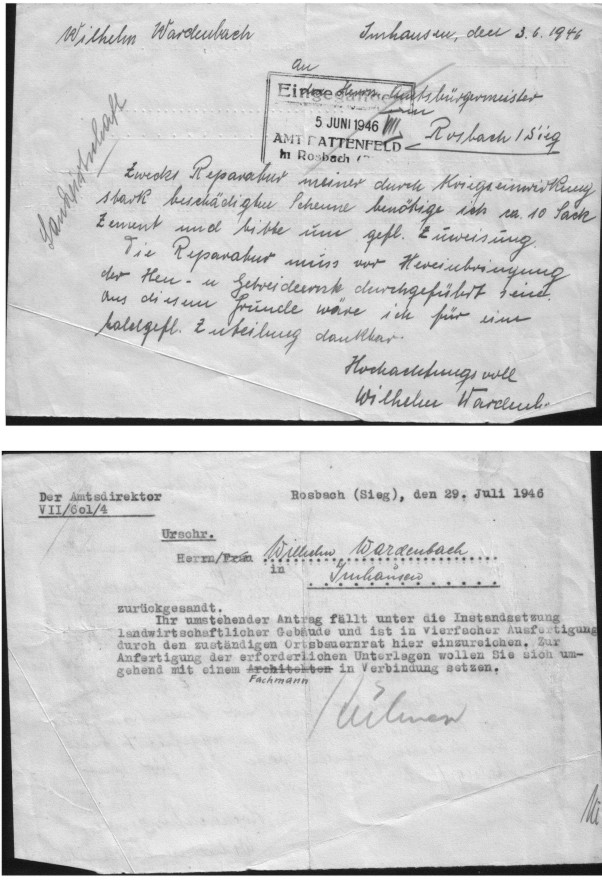 Wilhelm Wardenbach Imhausen, den 3.6.1946
An
den Herrn Amtsbürgermeister
Eingegangen
in
5. JUNI 1946
Rosbach / Sieg
AMT DATTENFELD
In Rosbach
Landwirtschaft
Zwecks Reparatur meiner durch Kriegseinwirkung
stark beschädigten Scheune benötige ich ca. 10 Sack
Zement und bitte um gefl. Zuweisung.
Die Reparatur muss vor Hereinbringung
der Heu- u Getreideernte durchgeführt sein.
Aus diesem Grunde wäre ich für eine
baldgefl. Zuteilung dankbar.
Hochachtungsvoll
Wilhelm Wardenb
Der Amtsdirektor Rosbach (Sieg), den 29. Juli 1946
VII/601/4
Urschr.
Herrn/Frau Wilhelm Wardenbach
in Imhausen
zurückgesandt.
Ihr umstehender Antrag fällt unter die Instandsetzung
landwirtschaftlicher Gebäude und ist in vierfacher Ausfertigung
durch den zuständigen Ortsbauernrat hier einzureichen. Zur
Anfertigung der erforderlichen Unterlagen wollen Sie sich um-
gehend mit einem Architekten in Verbindung setzen.
Fachmann